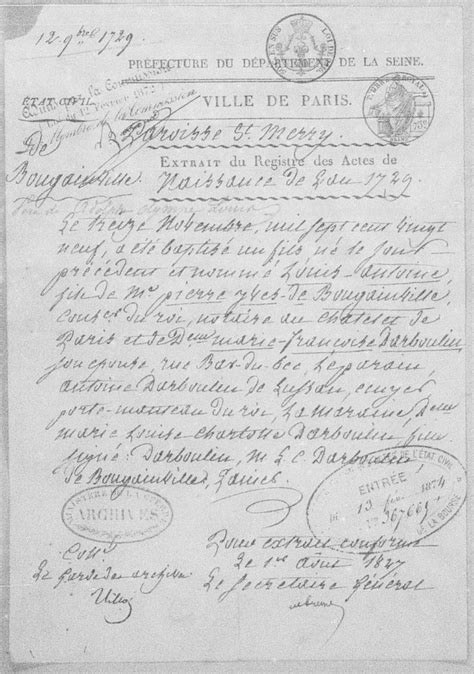 12 9bre 1729.
PRÉFECTURE DU DÉPARTEMENT DE LA SEINE.
ÉTAT CIVIL
VILLE DE PARIS.
Paroisse St. Merry
De
Bougainville
EXTRAIT du Registre des Actes de
Naissance de L'an 1729
Le treize Novembre, mil sept cent vingt
neuf, a été baptisé un fils né le jour
précédent et nommé Louis-Antoine,
fils de Mr. pierre yves-de Bougainville,
du roi, notaire au Châtelet de
Paris et de Delle marie-françoise Darboulin
son épouse, rue Bar-du-bec, Le parain,
antoine Darboulin de Lussan, écuyer
porte-manteau du roi, La maraine, Delle
marie Louise charlotte Darboulin
signé: Darboulin, m. L. C. Darboulin
de Bougainville,
ARCHIVES
ENTRÉE
1874
367669
DE LA BOURSE
Pour extrait conforme
Le 1er août 1827
Le Secrétaire Général
Le Garde des archives